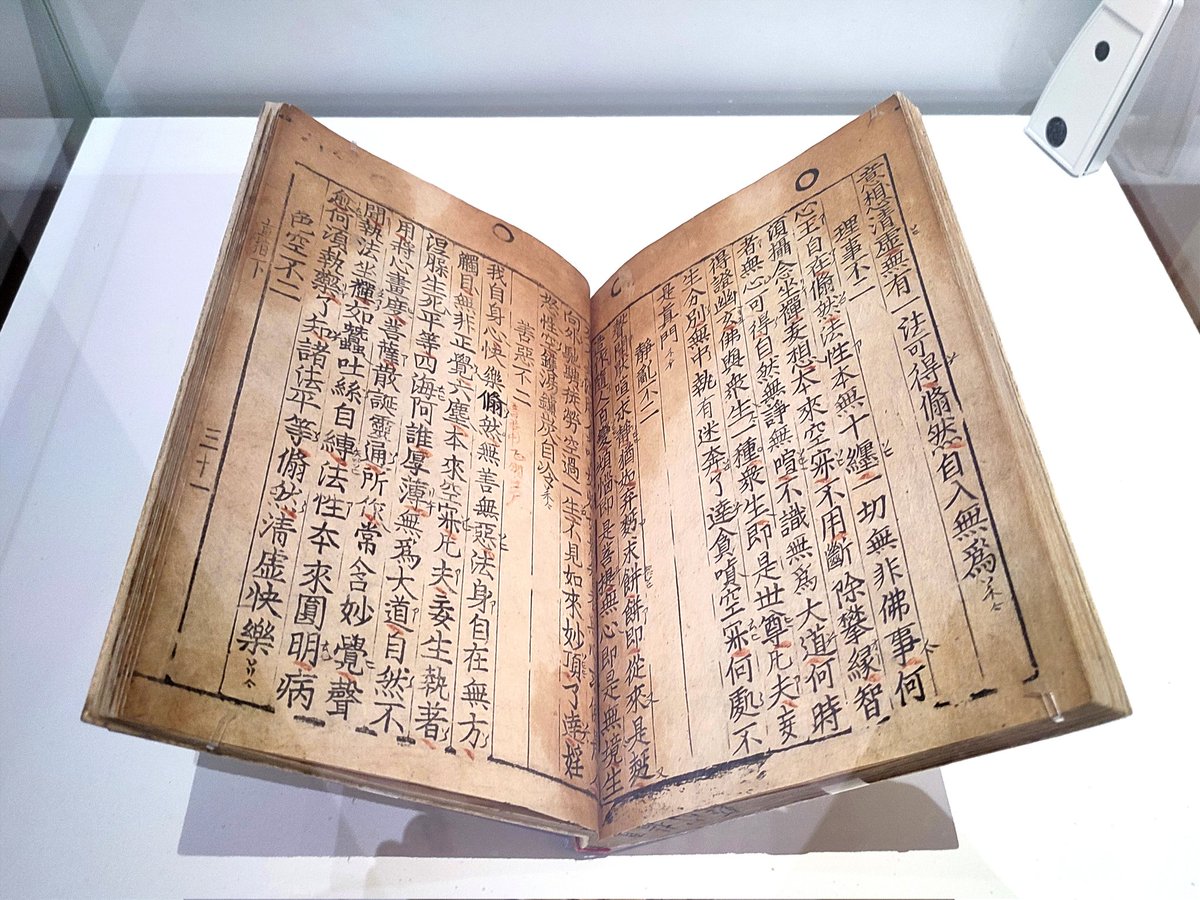 意想清虛無有一法可得翛然自入無爲
理事不二
心王自在翛然法性本無十纏一切無非佛事何
須攝念坐禪妄想本來空寂不用斷除攀緣智
者無心可得自然無諍無喧不識無爲大道何時
得證幽玄佛與衆生一種衆生即是世尊凡夫妄
生分別無中執有迷奔了達貪嗔空寂何處不
是眞門
靜亂不二
聲聞厭喧求靜猶如弃麪求餠餠即從來是麪
造作隨人百變煩惱即是菩提無心即是無境生
向外馳騁拼勞空過一生不見如來妙頂了達婬
怒性空鑊湯鑪炭自冷
善惡不二
我自身心快樂翛然無善無惡法身自在無方
觸目無非正覺六塵本來空寂凡夫妄生執著
涅槃生死平等四海阿誰厚薄無爲大道自然不
用將心畫度菩薩散誕靈通所作常含妙覺聲
聞執法坐禪如蠶吐絲自縛法性本來圓明病
愈何須執藥了知諸法平等翛然清虛快樂
色空不二
直指下 三十一